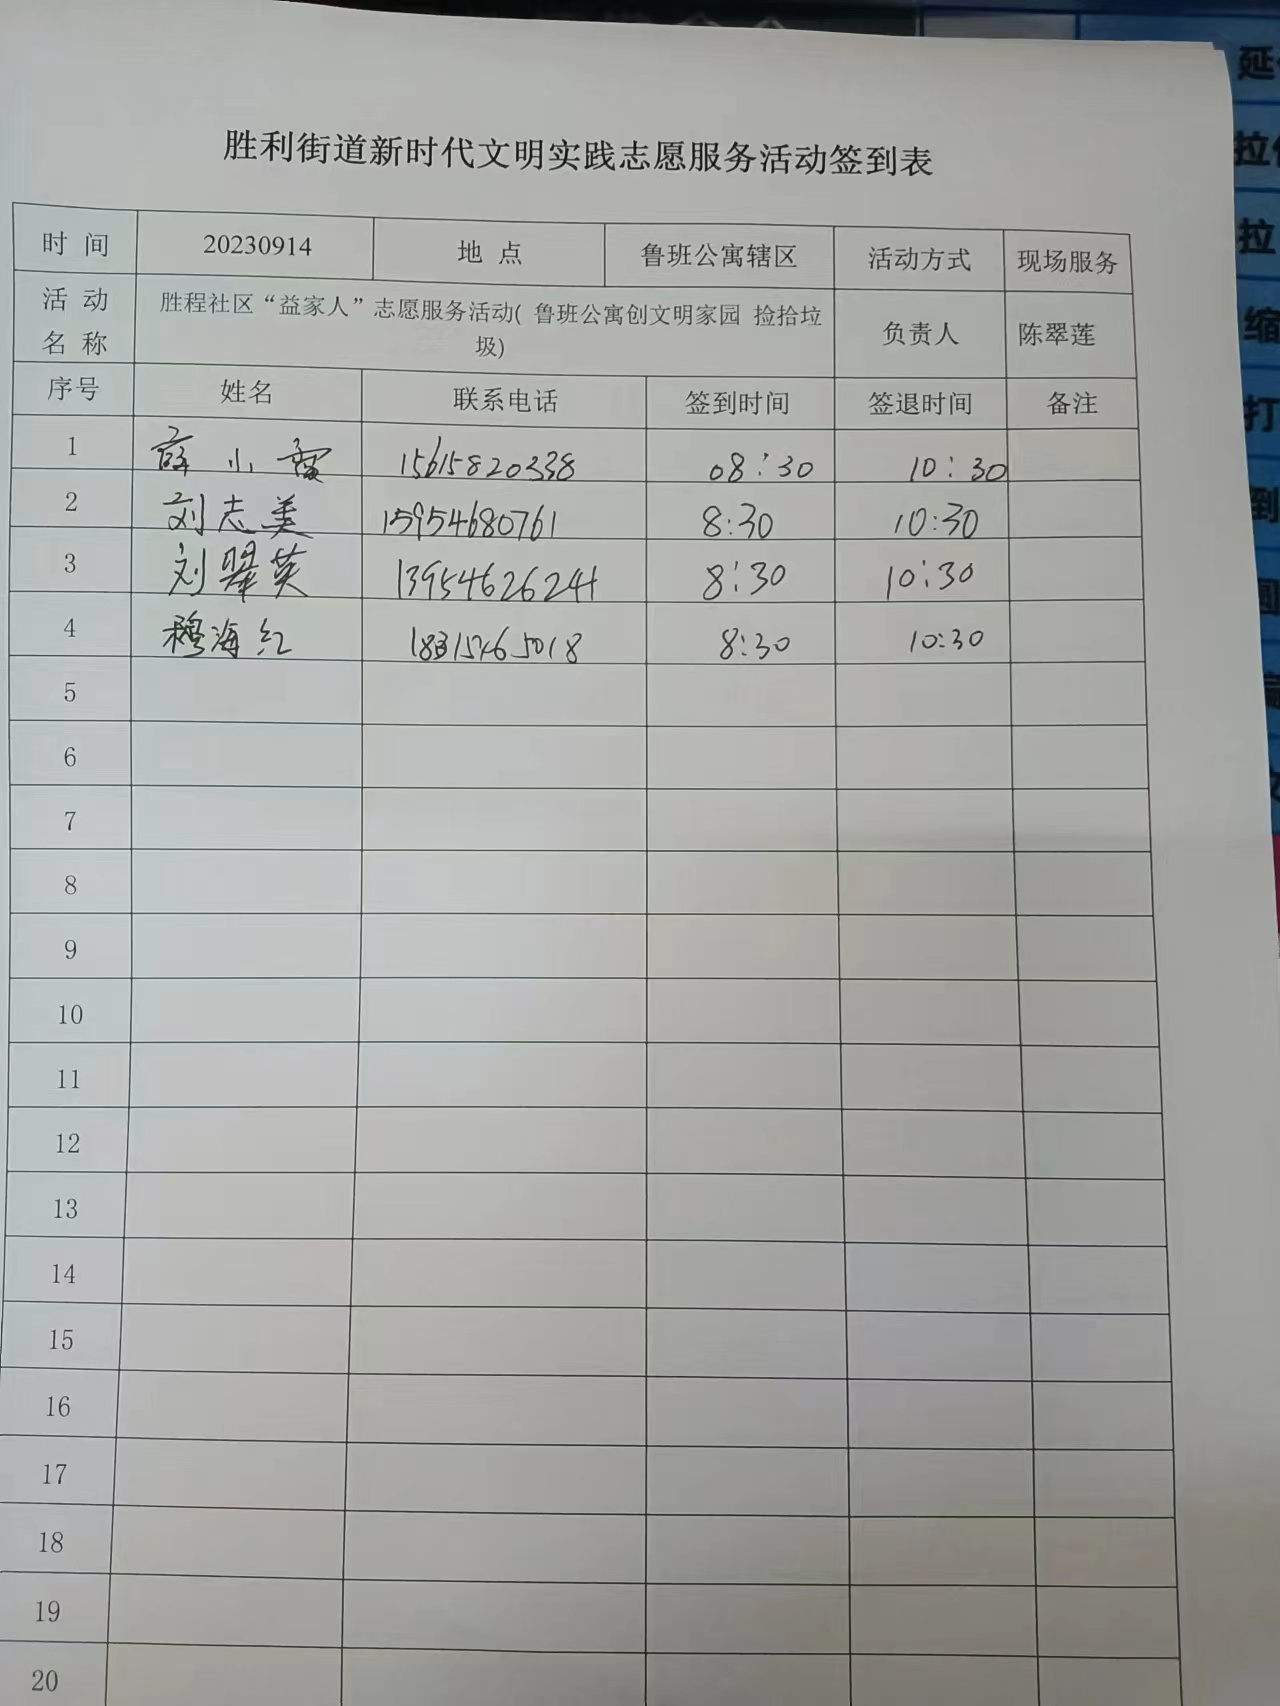 胜利街道新时代文明实践志愿服务活动签到表
时 间 20230914 地 点 鲁班公寓辖区 活动方式 现场服务
活 动 名 称 胜程社区“益家人”志愿服务活动( 鲁班公寓创文明家园 捡拾垃圾) 负责人 陈翠莲
序号 姓名 联系电话 签到时间 签退时间 备注
1 薛小霞 15615820338 08:30 10:30
2 刘志美 15954680761 8:30 10:30
3 刘翠英 13954626241 8:30 10:30
4 穆海红 8:30 10:30
5
6
7
8
9
10
11
12
13
14
15
16
17
18
19
20
延
拉
拉
缩
打
到
圆